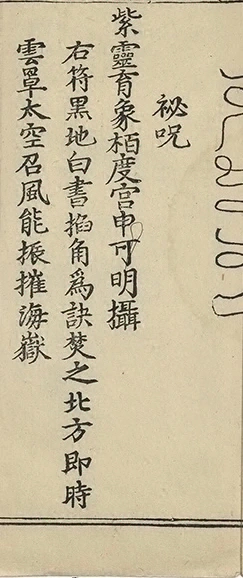 祕呪
紫靈育象栢度宫申可明攝
右符黑地白書掐角爲訣焚之北方即時
雲罩太空召風能振摧海嶽